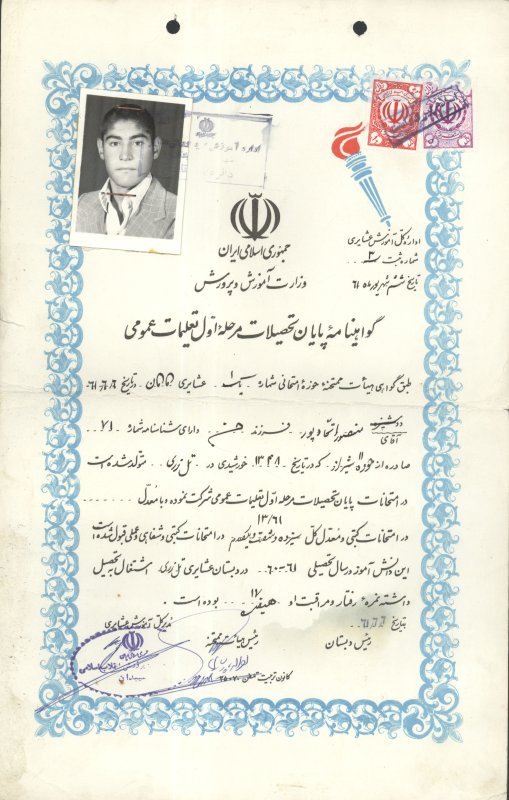 اداره آموزش
جمهوری اسلامی ایران
وزارت آموزش و پرورش
اداره کل آموزش عشایری
شماره ثبت ۳
تاریخ ششم شهریور ماه ۶۱
گواهینامهٔ پایان تحصیلات مرحلهٔ اوّل تعلیمات عمومی
طبق گواهی هیأت ممتحنهٔ حوزهٔ امتحانی شماره ۱ یک عشایری و تاریخ ۶۱.۶.۶
دوشیزه
آقای منصور اتحادپور فرزند حسن دارای شناسنامه شماره ۷۱
صادره از حوزه ۱۱ شیراز که در تاریخ ۱۳۴۸ خورشیدی در تل زری متولد شده است
در امتحانات پایان تحصیلات مرحله اوّل تعلیمات عمومی شرکت نموده و با معدّل
۱۳/۶۱
در امتحانات کتبی و معدّل کلّ سیزده و شصت و یکصدم در امتحانات کتبی و شفاهی و عملی قبول شده است
این دانش آموز در سال تحصیلی ۶۱-۶۰ در دبستان عشایری تل زری اشتغال بتحصیل
داشته نمرهٔ رفتار و مراقبت او ۱۷ هیفده بوده است
بتاریخ ۶۱
رئیس دبستان
رئیس هیأت ممتحنه
مدیر کل آموزش عشایری